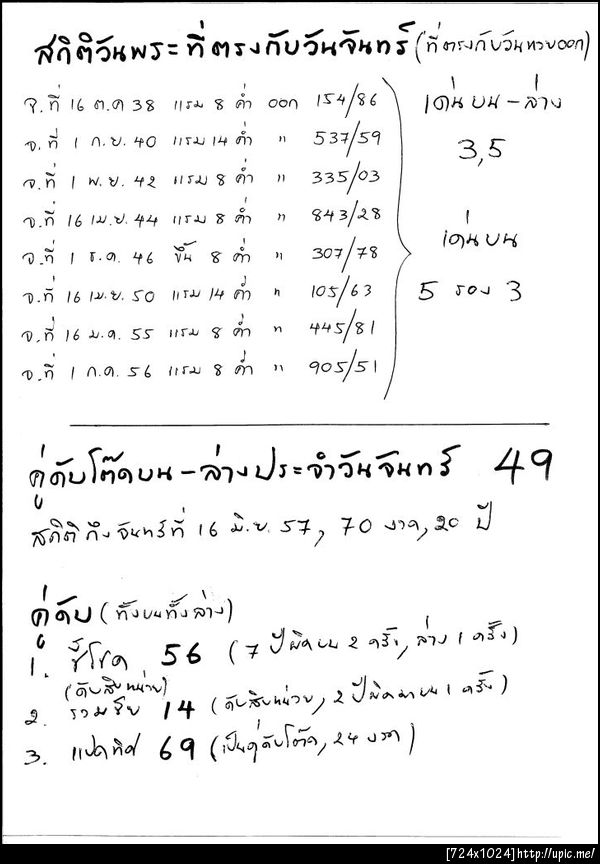 สถิติวันพระที่ตรงกับวันจันทร์ (ที่ตรงกับวันหวยออก)
จ.ที่ 16 ต.ค 38 แรม 8 ค่ำ ออก 154/86
จ.ที่ 1 ก.ย. 40 แรม 14 ค่ำ " 537/59
จ.ที่ 1 พ.ย. 42 แรม 8 ค่ำ " 335/03
จ.ที่ 16 เม.ย. 44 แรม 8 ค่ำ " 843/28
จ.ที่ 1 ธ.ค. 46 ขึ้น 8 ค่ำ " 307/78
จ.ที่ 16 เม.ย. 50 แรม 14 ค่ำ " 105/63
จ.ที่ 16 ม.ค. 55 แรม 8 ค่ำ " 445/81
จ.ที่ 1 ก.ค. 56 แรม 8 ค่ำ " 905/51
เด่นบน-ล่าง
3,5
เด่นบน
5 รอง 3
คู่ดับโต๊ดบน-ล่างประจำวันจันทร์ 49
สถิติถึงจันทร์ที่ 16 มิ.ย. 57, 70 งวด, 20 ปี
คู่ดับ (ทั้งบนทั้งล่าง)
1. ชี้โชค 56 (7 ปีผิดบน 2 ครั้ง, ล่าง 1 ครั้ง)
(ดับสิบหน่วย)
2. รวมชัย 14 (ดับสิบหน่วย, 2 ปีผิดมาบน 1 ครั้ง)
3. แปดทิศ 69 (เป็นคู่ดับโต๊ด, 24 งวด)
[724x1024]http://upic.me/